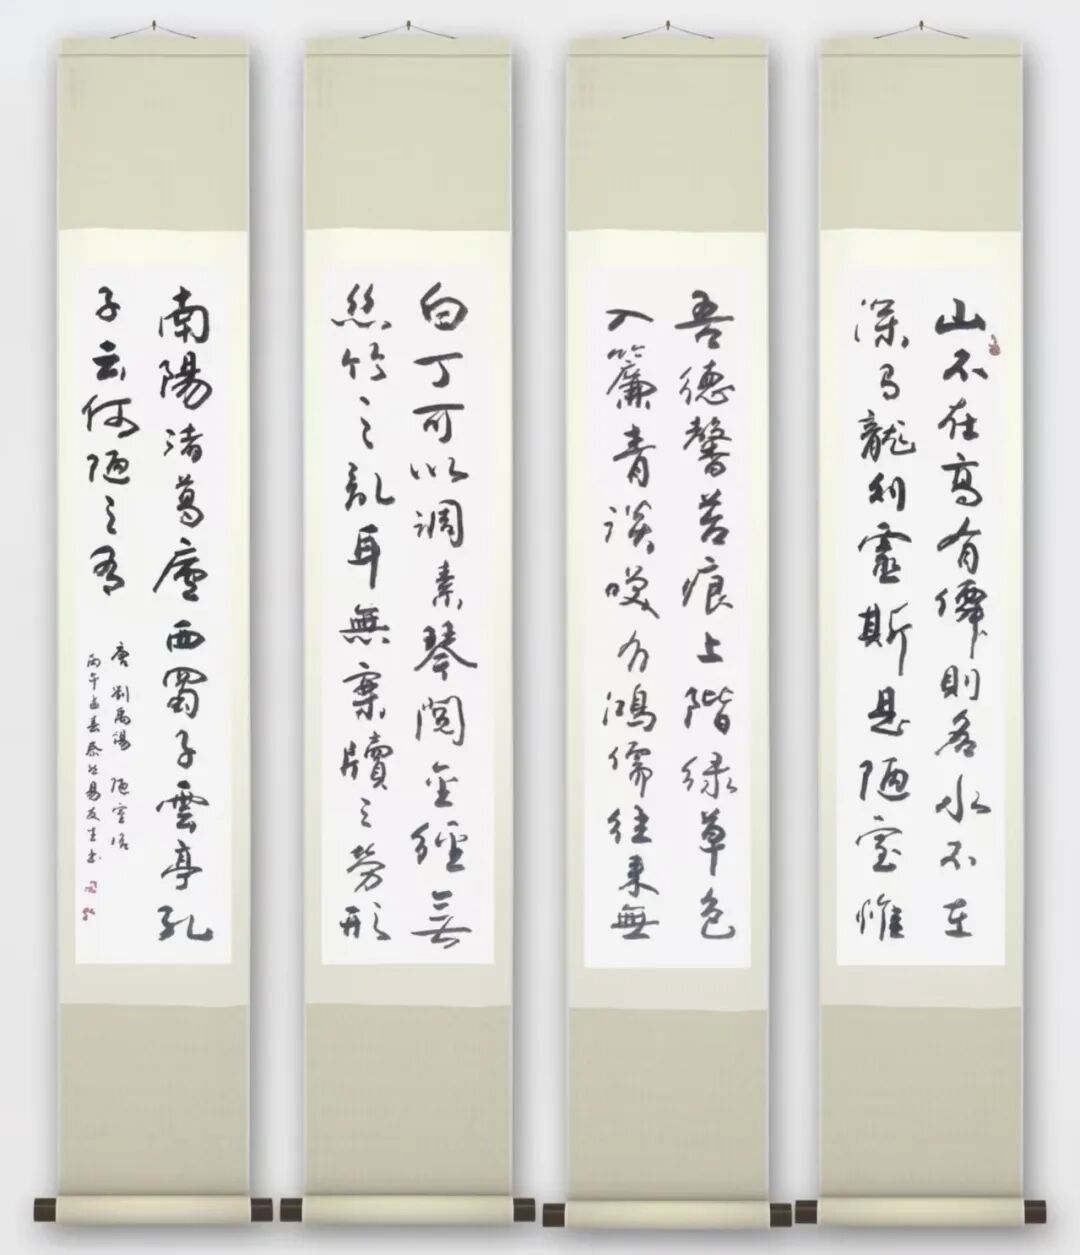 山不在高有僊則名水不在
深有龍則靈斯是陋室惟
吾德馨苔痕上階緑草色
入簾青談咲有鴻儒往来無
白丁可以調素琴閲金經無
絲竹之亂耳無案牘之勞形
南陽諸葛廬西蜀子雲亭孔
子云何陋之有
唐 劉禹錫 陋室銘
丙午孟春 易友生书